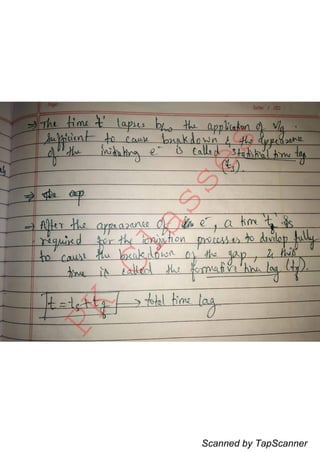 ⇒ The time 't' lapses b/w the application of v/g
sufficient to cause breakdown & the appearance
of the initiating e⁻ is called statistical time lag
(ts).
⇒ The exp
→ After the appearance of e⁻, a time 'tf' is
required for the ionisation processes to develop fully
to cause the breakdown of the gap, & this
time is called the formative time lag (tf).
t = ts + tf → total time lag
PK Classes
Scanned by TapScanner